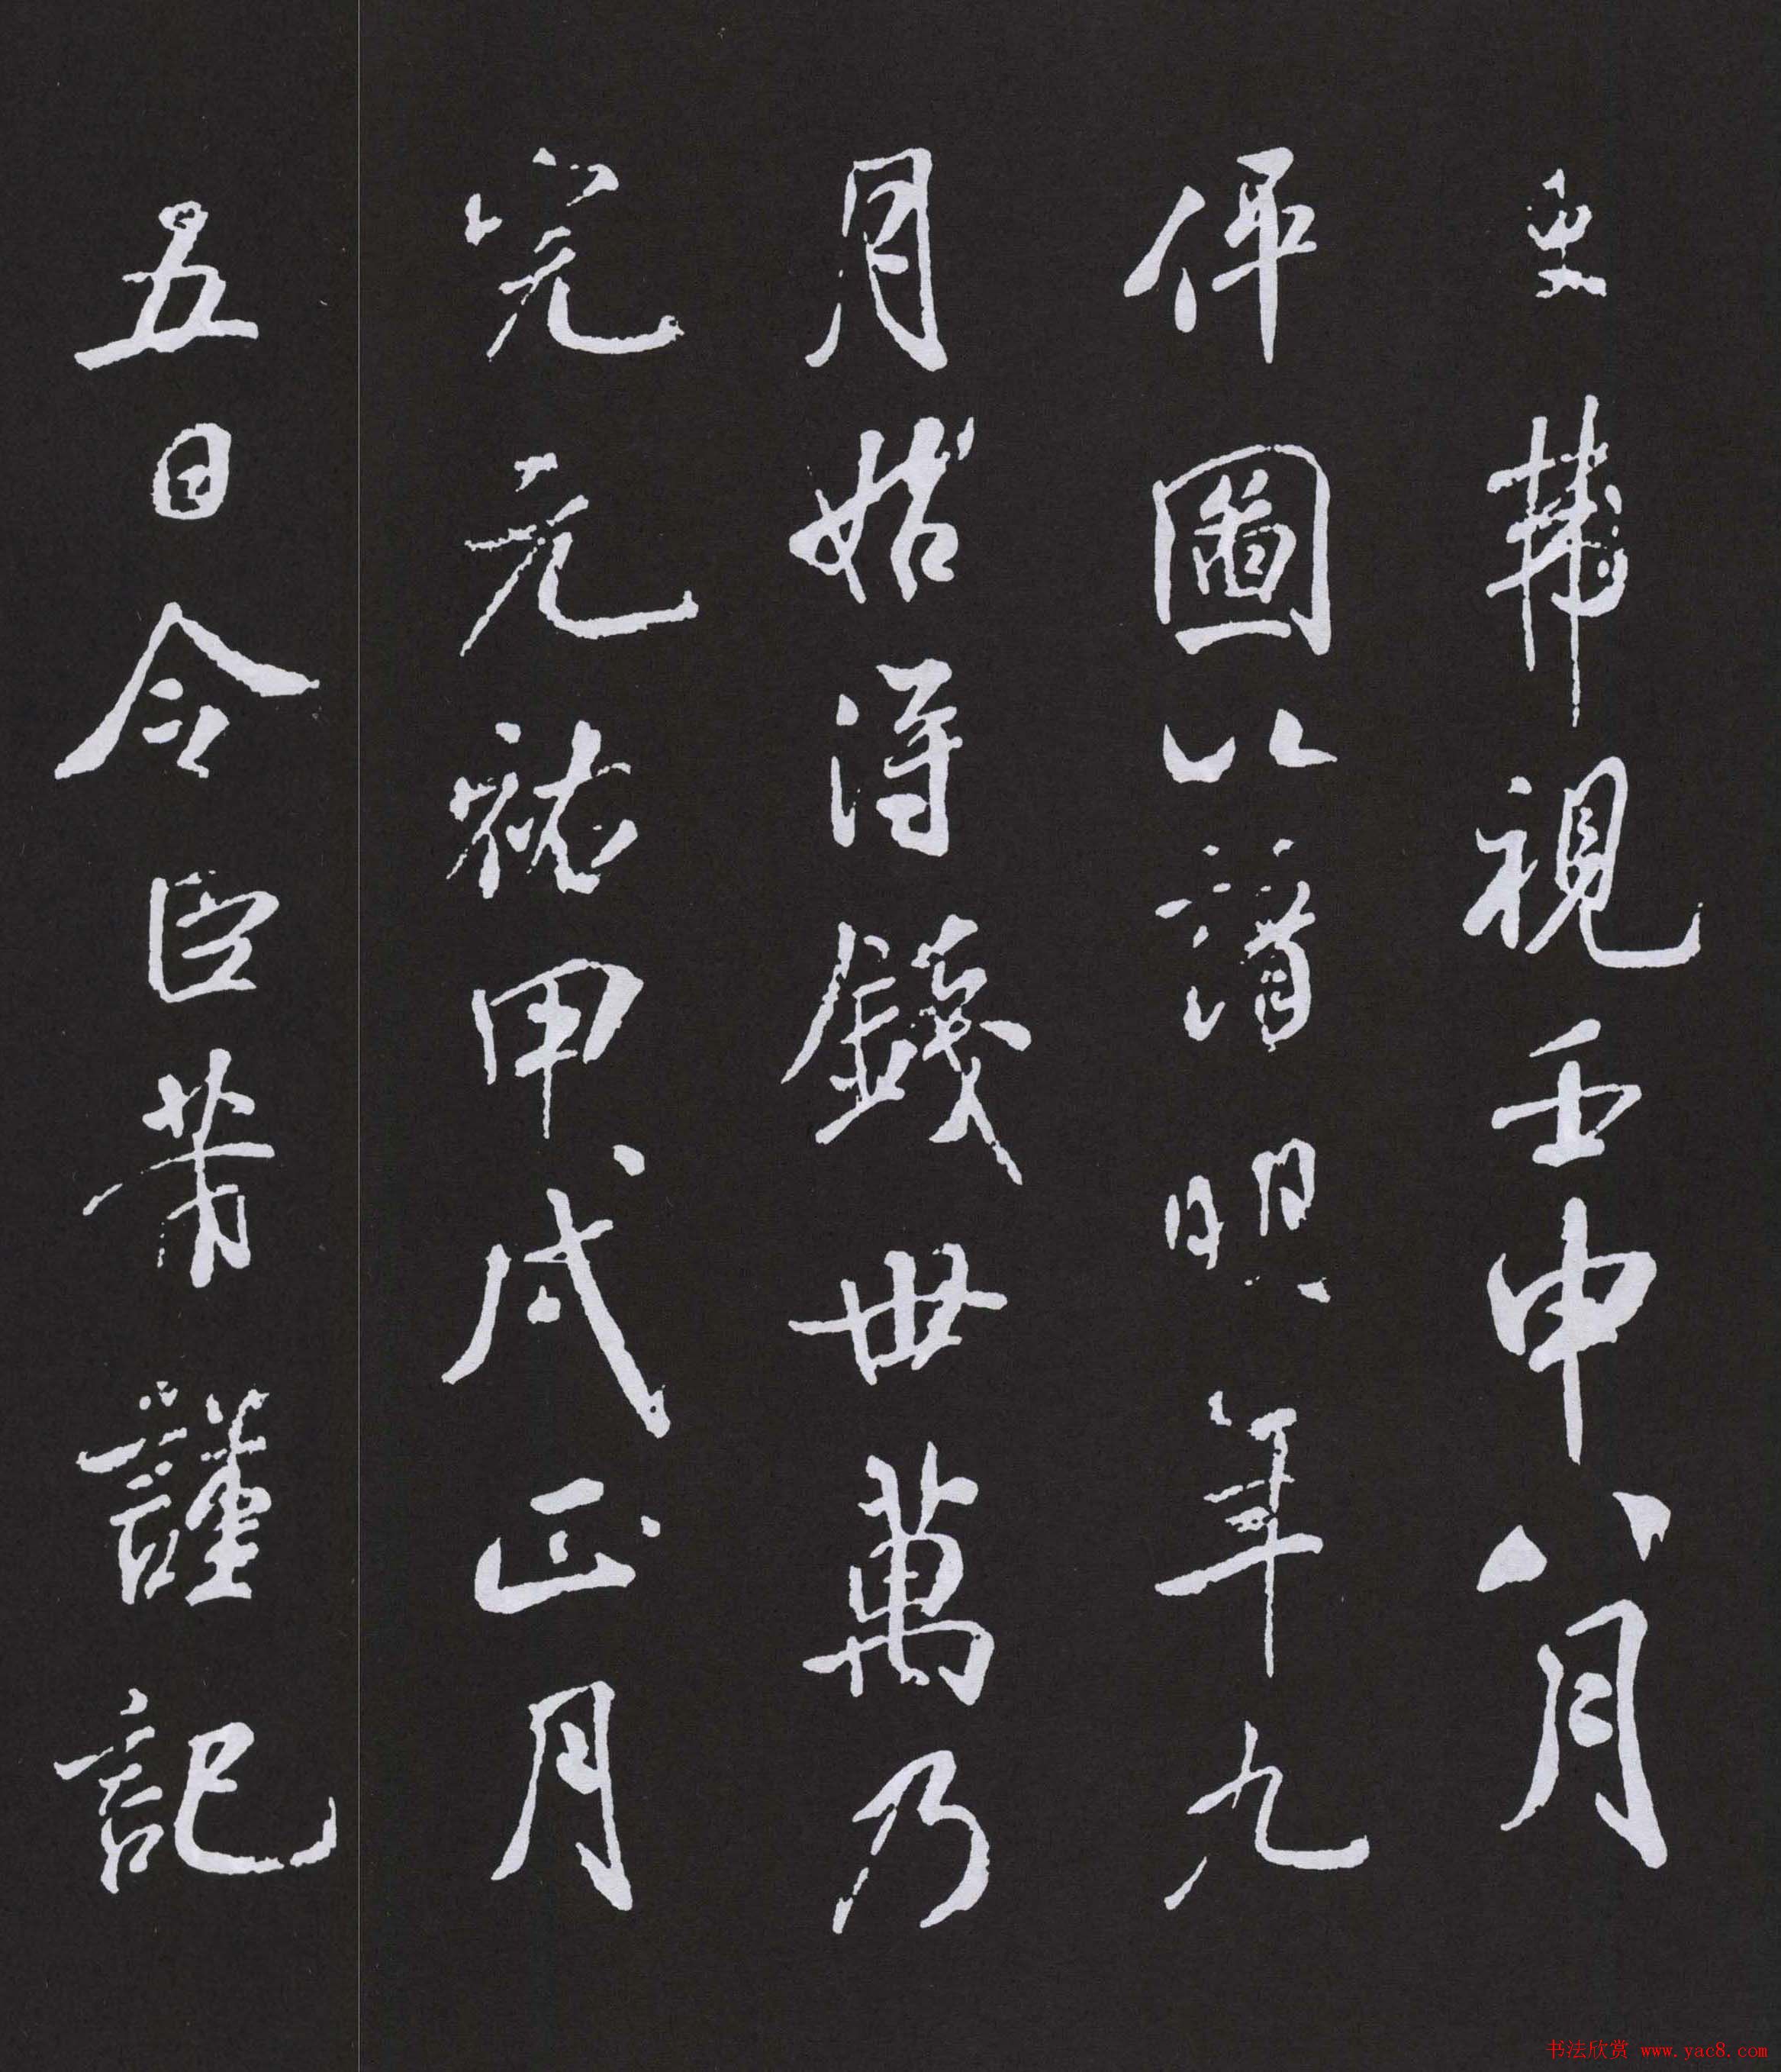 視壬申八月
俾圖以請明年九
月始得錢丗萬乃
完元祐甲戌正月
五日令臣芾謹記
书法欣赏 www.yac8.com